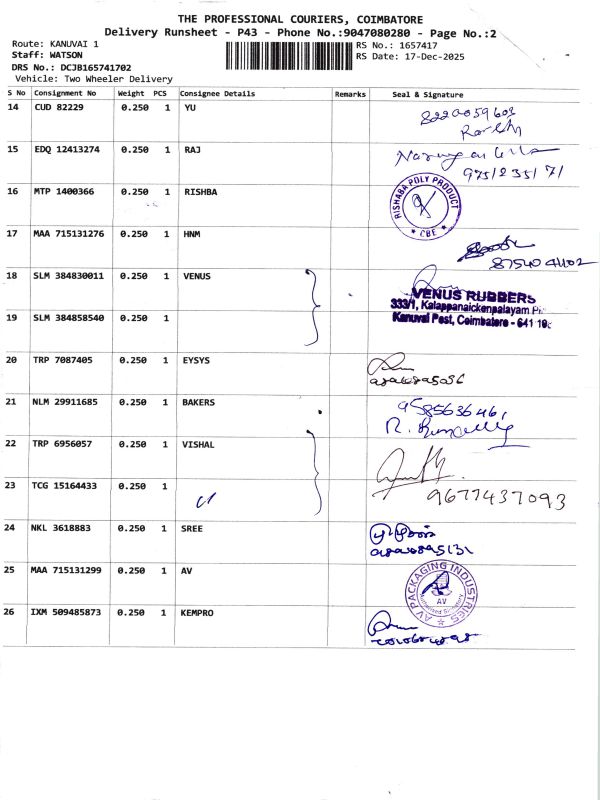 THE PROFESSIONAL COURIERS, COIMBATORE
Delivery Runsheet - P43 - Phone No.:9047080280 - Page No.:2
Route: KANUVAI 1
Staff: WATSON
DRS No.: DCJB165741702
Vehicle: Two Wheeler Delivery
RS No.: 1657417
RS Date: 17-Dec-2025
S No Consignment No Weight PCS Consignee Details Remarks Seal & Signature
14 CUD 82229 0.250 1 YU
15 EDQ 12413274 0.250 1 RAJ
16 MTP 1400366 0.250 1 RISHBA
RISHABA POLY PRODUCT
* CBE *
17 MAA 715131276 0.250 1 HNM
87540 41102
18 SLM 384830011 0.250 1 VENUS
VENUS RUBBERS
333/1, Kalappanaickenpalayam
Kanuvai Post, Coimbatore - 641
19 SLM 384858540 0.250 1
20 TRP 7087405 0.250 1 EYSYS
21 NLM 29911685 0.250 1 BAKERS
22 TRP 6956057 0.250 1 VISHAL
23 TCG 15164433 0.250 1
9677437093
24 NKL 3618883 0.250 1 SREE
25 MAA 715131299 0.250 1 AV
AV PACKAGING INDUSTRIES
AV
Authorised Signatory
26 IXM 509485873 0.250 1 KEMPRO